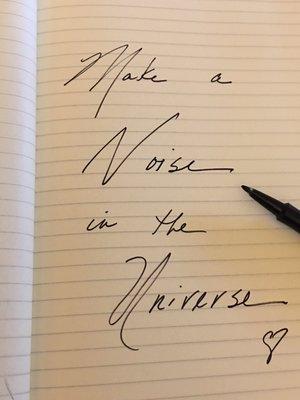 Make a
Noise
in the
Universe